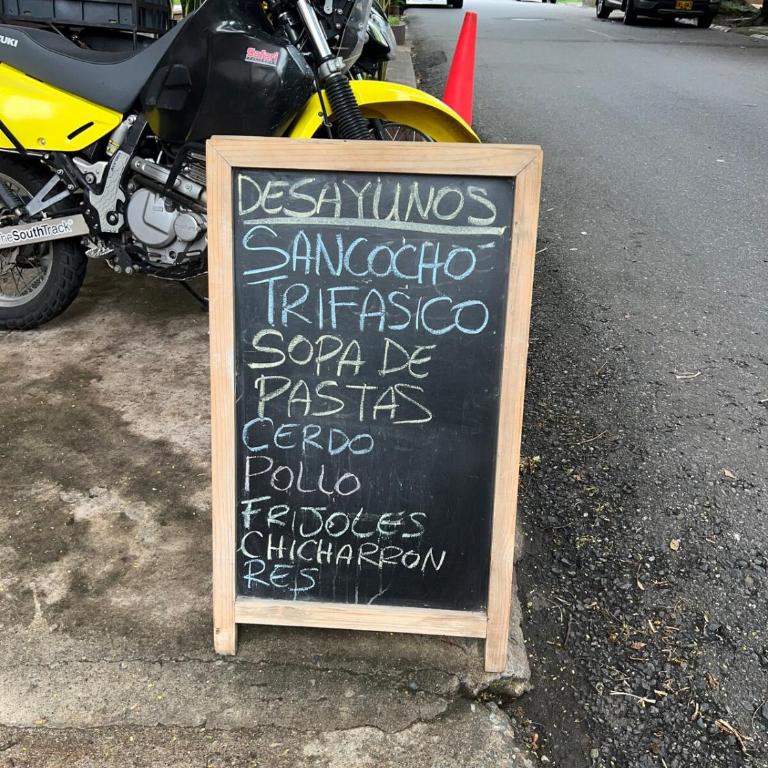 SUZUKI
Safari
TheSouthTrack
DESAYUNOS
SANCOCHO
TRIFASICO
SOPA DE
PASTAS
CERDO
POLLO
FRIJOLES
CHICHARRON
RES